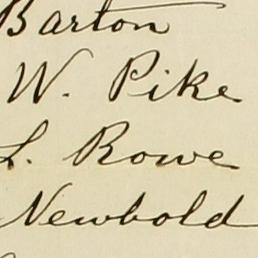 Barton
W. Pike
L. Rowe
Newbold